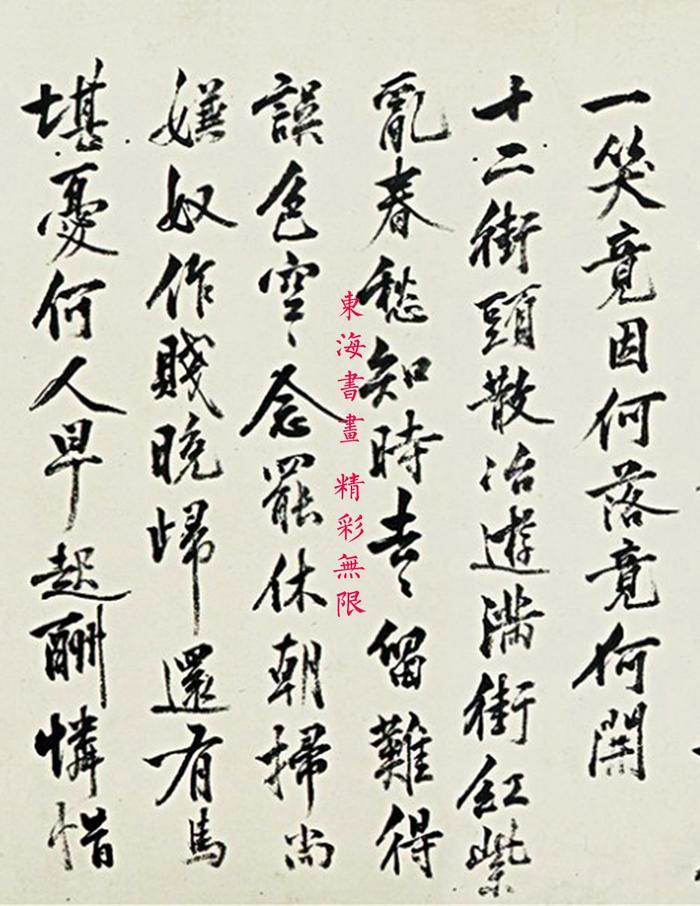 一笑竟因何落竟何開
十二街頭散冶遊滿街紅紫
亂春愁知時去〻留難得
誤色空〻念罷休朝掃尚
嫌奴作賤晚歸還有馬
堪憂何人早起酬憐惜
東海書畫 精彩無限